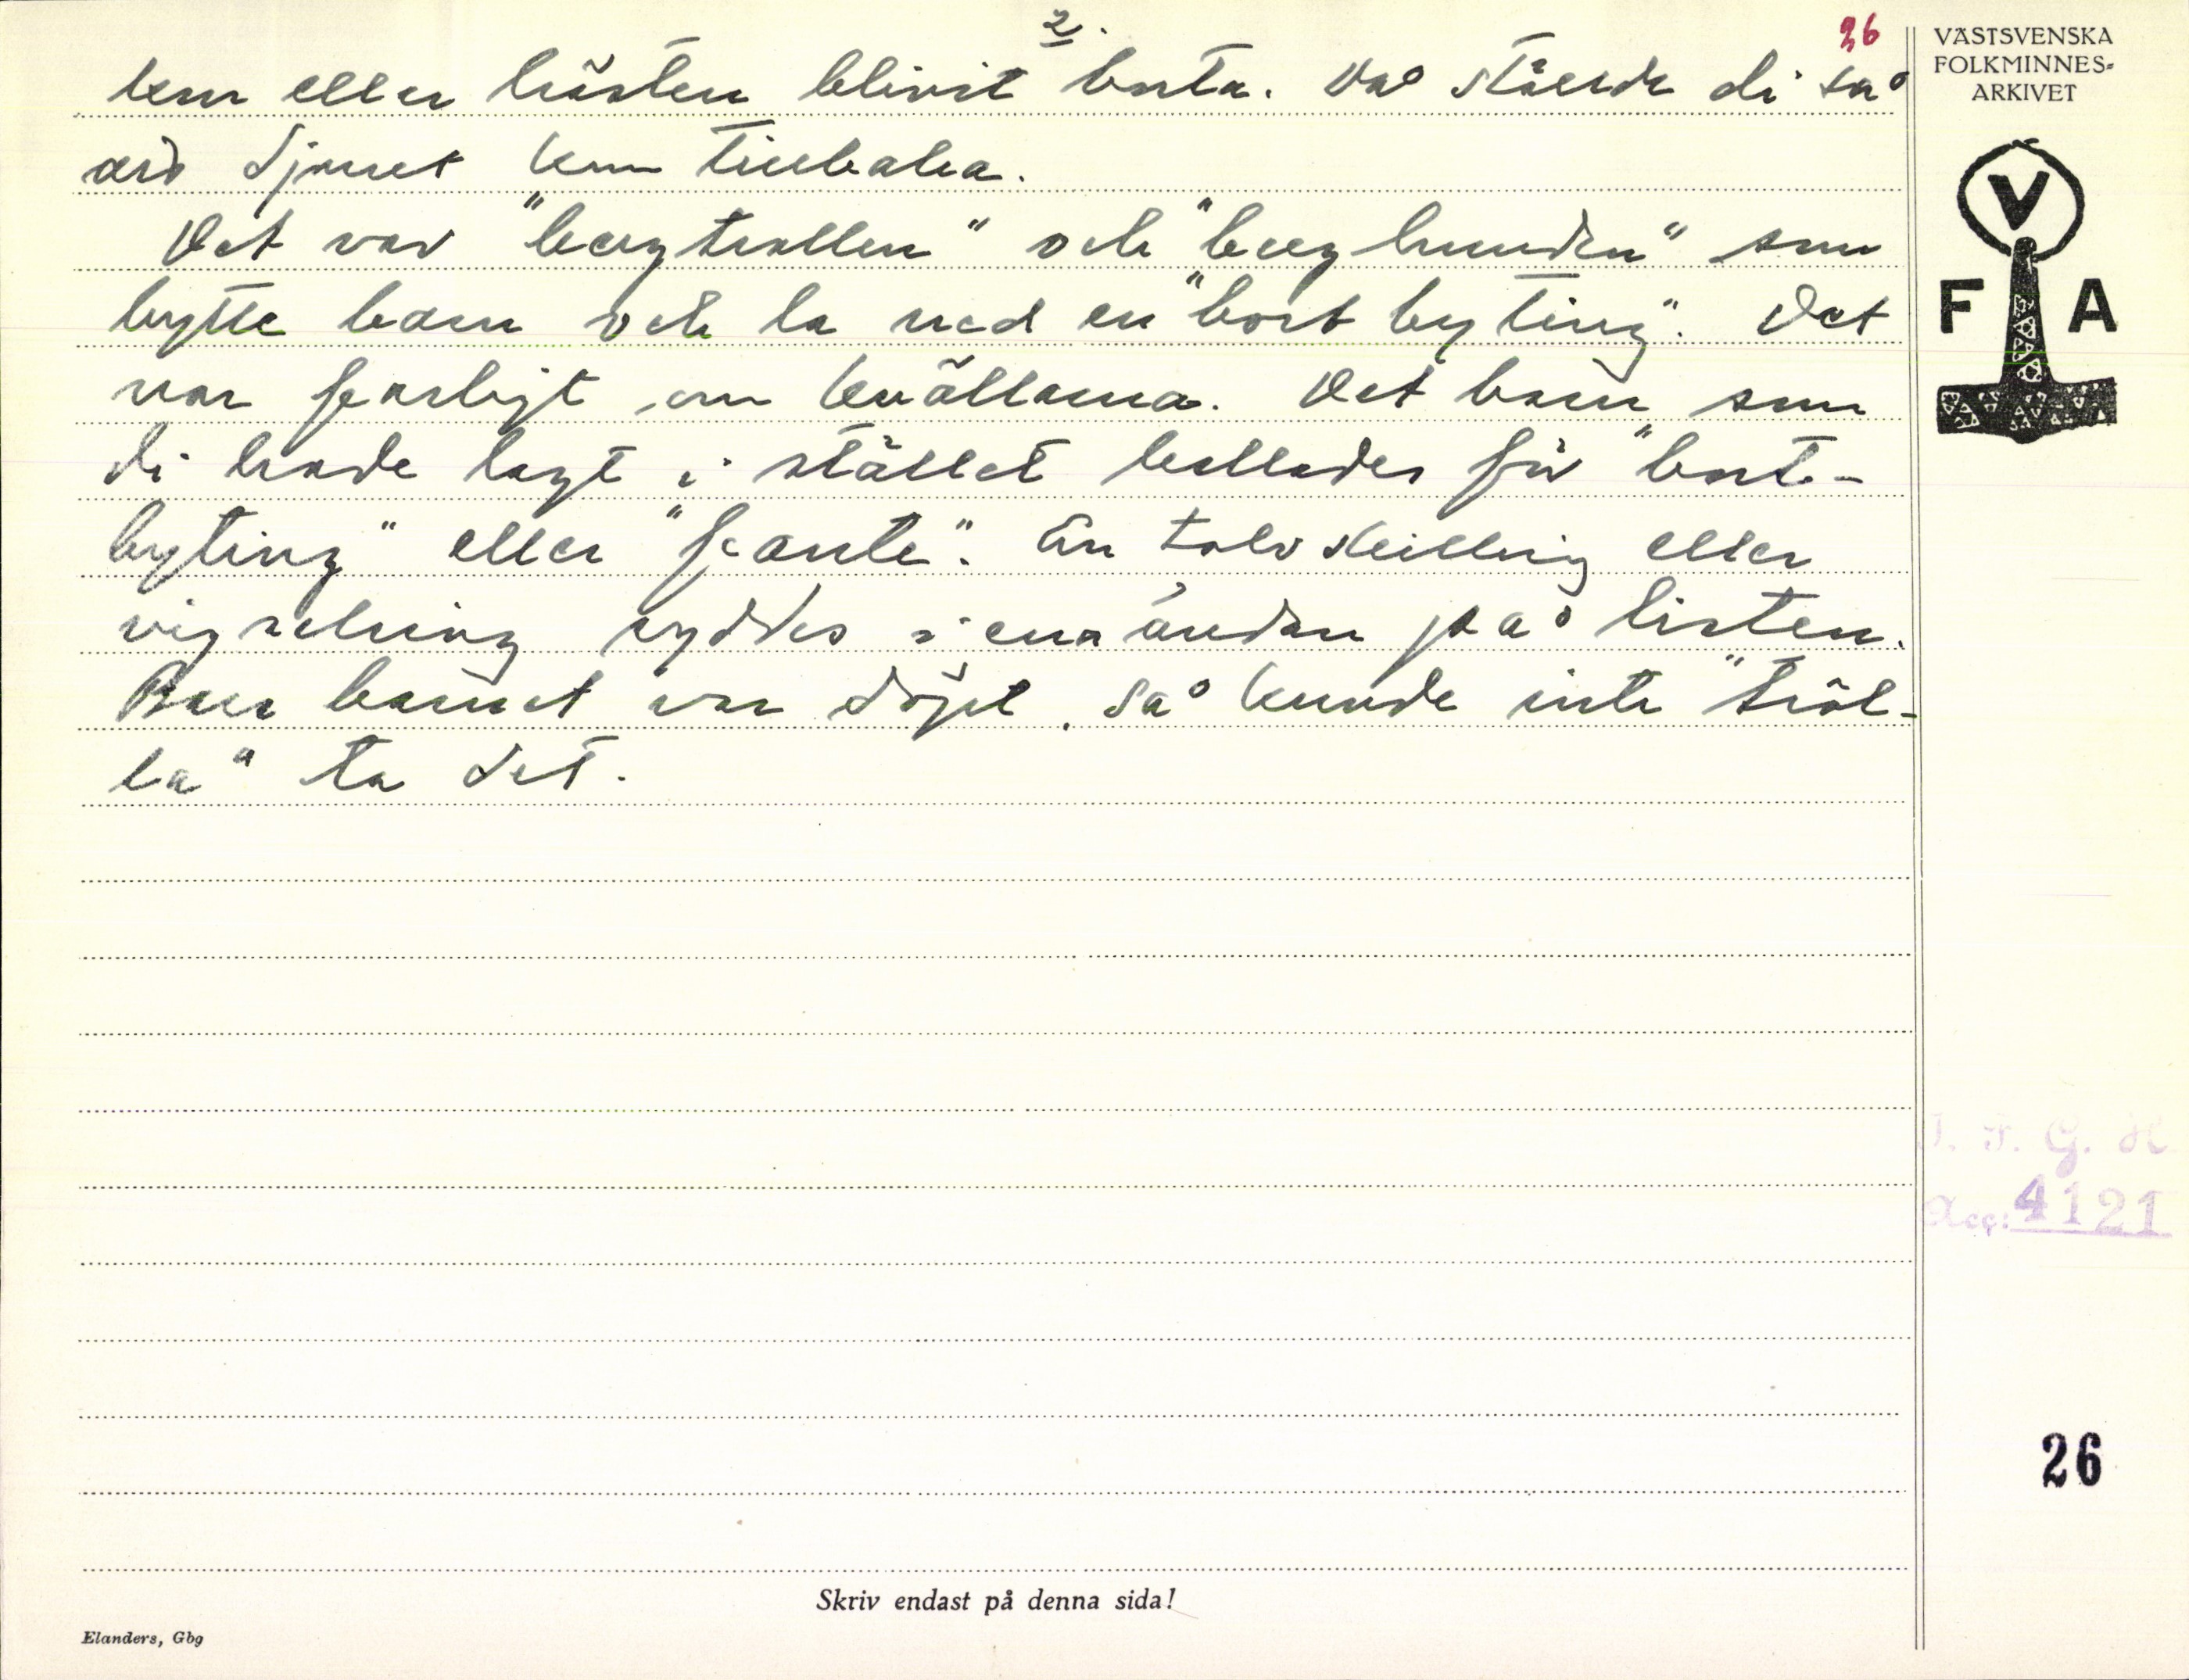 2.
36
ken eller hästen blivit borta. Då ställde di så
att djuret kom tillbaka.
Det var "bergtrollen" och "berghunden" som
bytte barn och la ned en "bortbyting". Det
var farligt om kvällarna. Det barn som
di hade lagt i stället kallades för "bort-
byting" eller "fante". En tolvskilling eller
vigselring syddes i ena ändan på listen.
Bara barnet var döpt, så kunde inte "tröl-
la" ta det.
VÄSTSVENSKA
FOLKMINNES-
ARKIVET
V
F A
I. F. G. H
Acc: 4121
26
Skriv endast på denna sida!
Elanders, Gbg